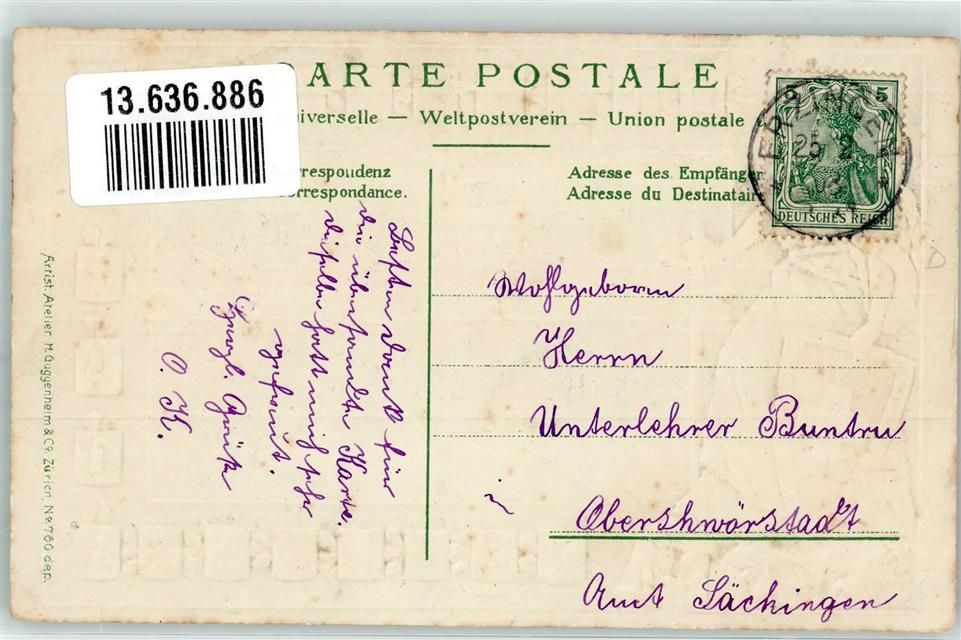 13.636.886
CARTE POSTALE
iverselle — Weltpostverein — Union postale
rrespondenz
orrespondance.
Adresse des Empfänger
Adresse du Destinatair
5 5
ERZINGEN
25 2
DEUTSCHES REICH
Besten Dank für
die übersandte Karte.
dieselbe hatt mich sehr
gefreut.
Herzl. Grüße
O. K.
Wohlgeboren
Herrn
Unterlehrer Buntru
i
Oberschwörstadt
Amt Säckingen
Artist. Atelier H. Guggenheim & Co. Zürich. No. 760 dep.